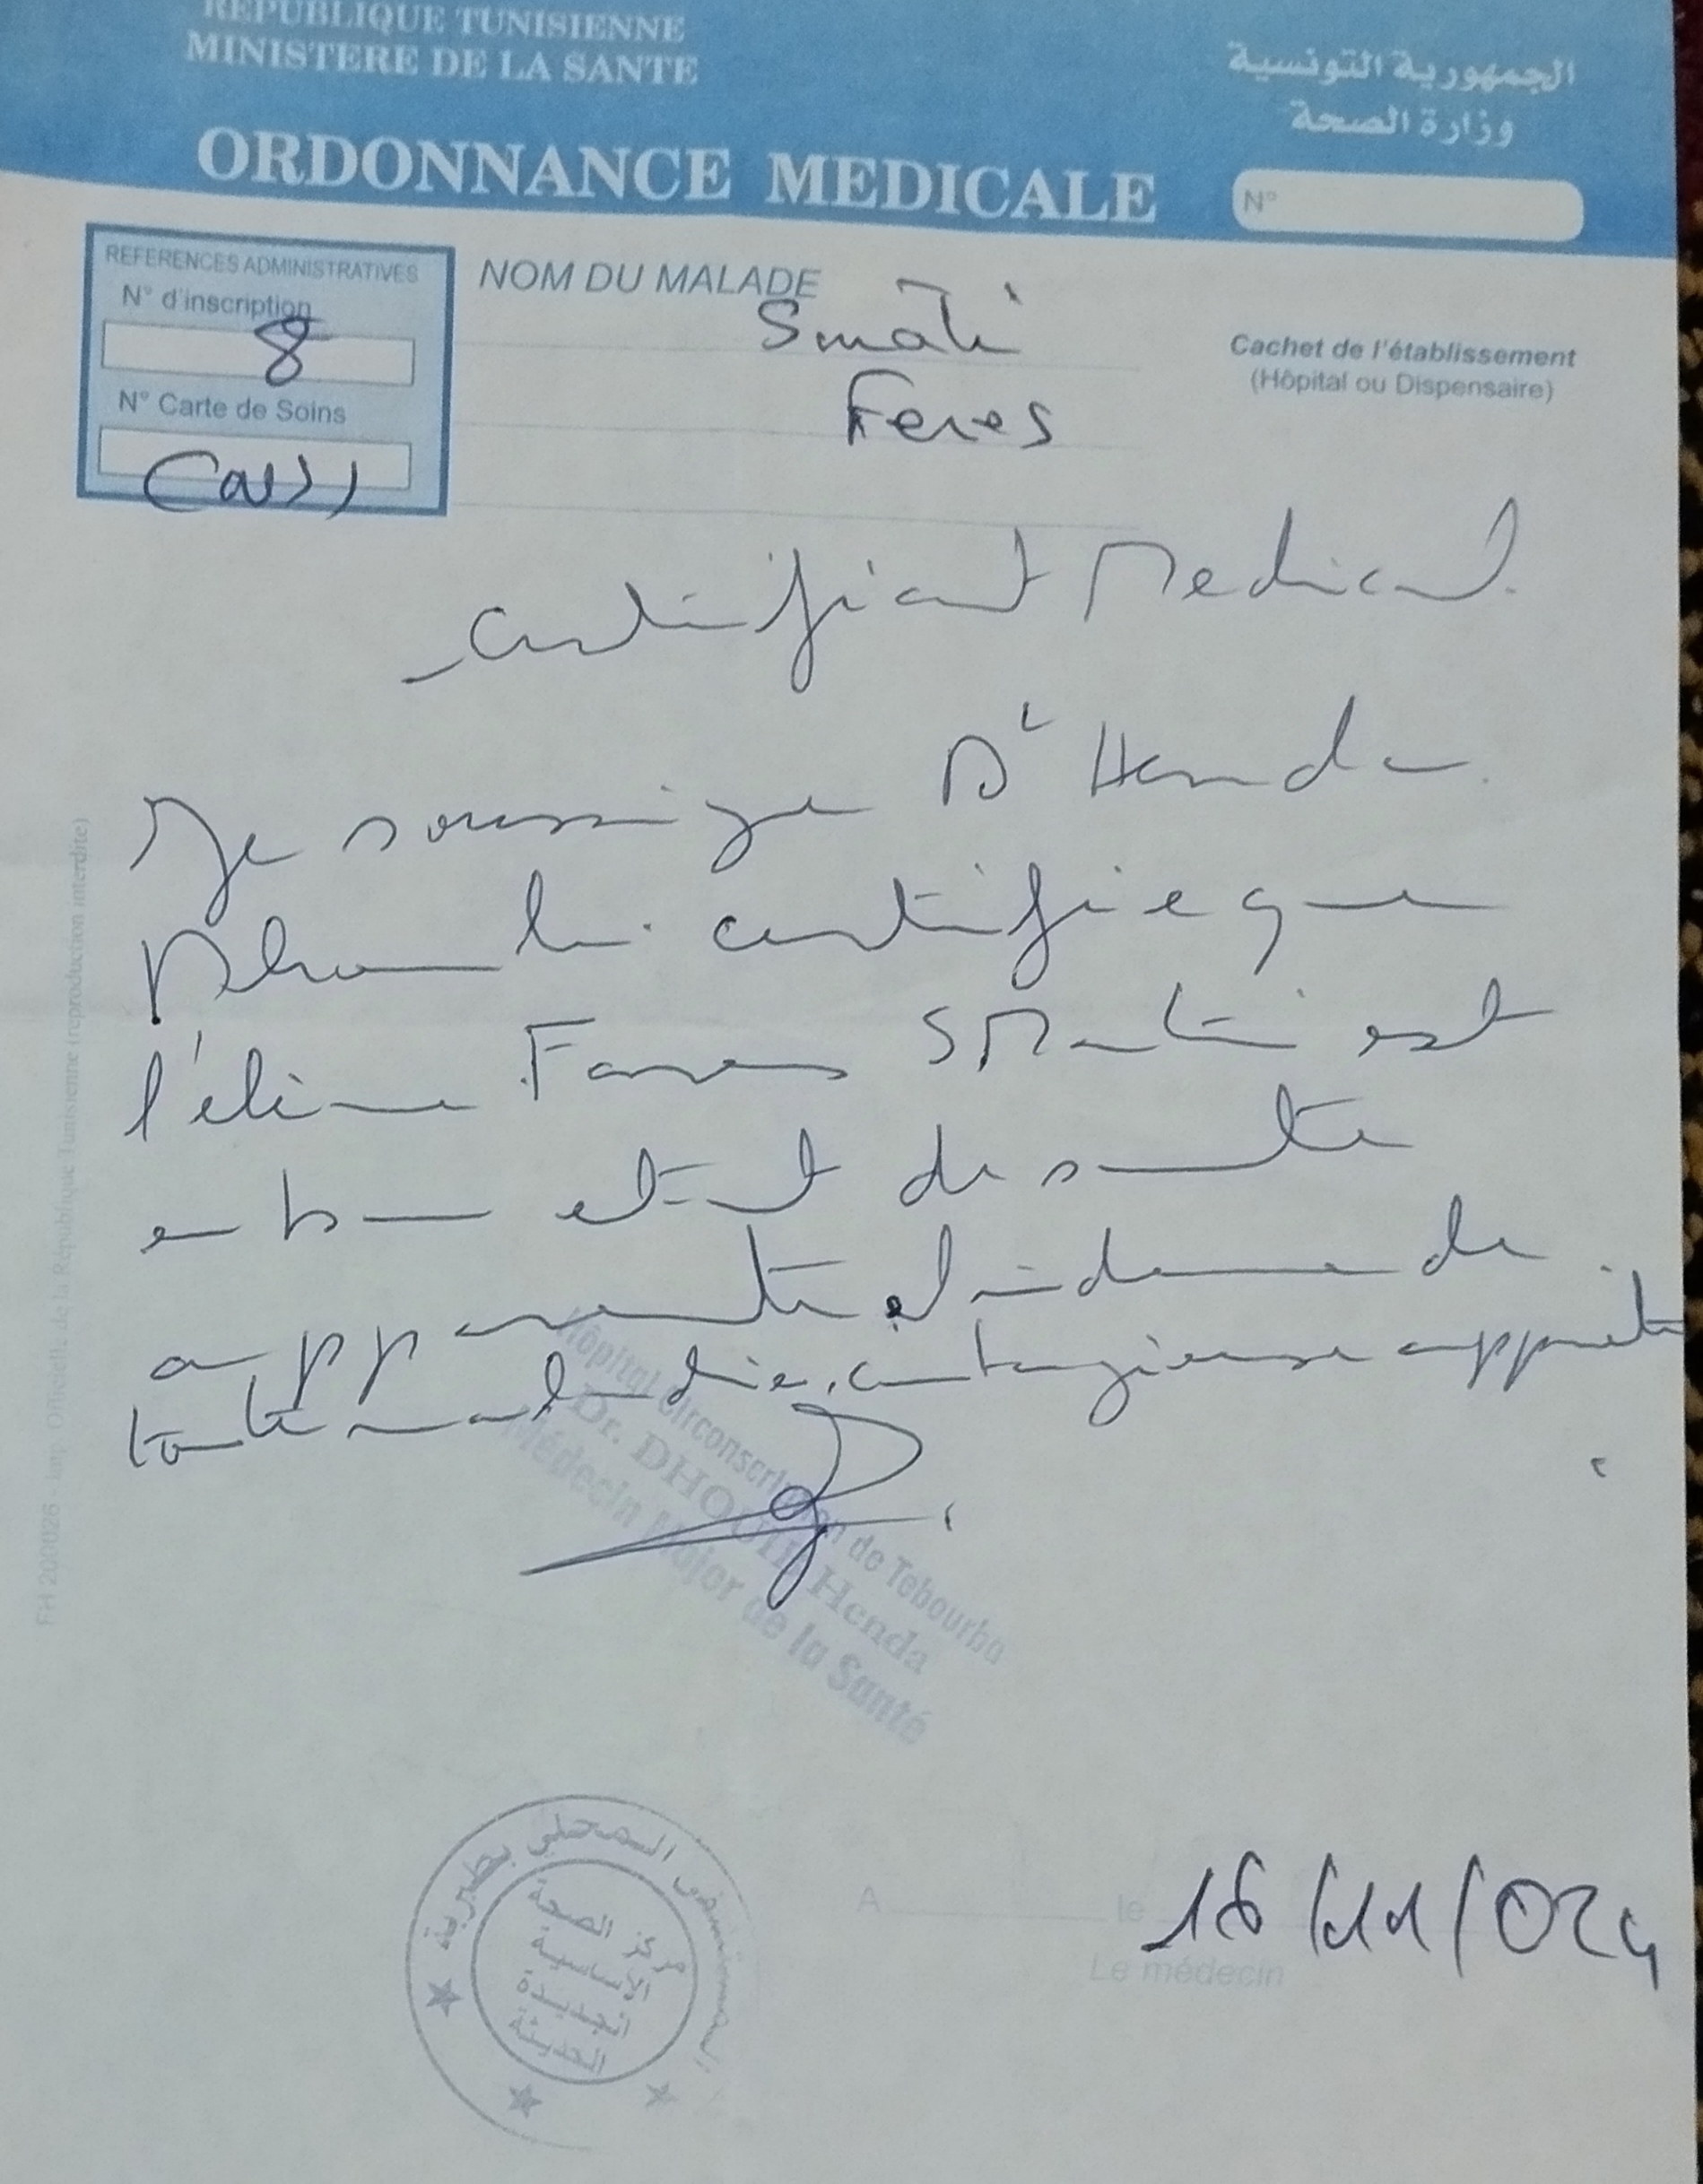 REPUBLIQUE TUNISIENNE
MINISTERE DE LA SANTE
الجمهورية التونسية
وزارة الصحة
ORDONNANCE MEDICALE
N°
REFERENCES ADMINISTRATIVES
N° d'inscription
8
N° Carte de Soins
NOM DU MALADE
Smati
Feres
Cachet de l'établissement
(Hôpital ou Dispensaire)
Certificat Medical.
Je soussigne Dr Henda
Dhouib certifie que
l'élève Fares SMati est
en bon etat de sante
apparente et indemne de
toute maladie contagieuse apparente
Hôpital Circonscription de Tebourba
Dr. DHOUIB Henda
Médecin Major de la Santé
المستشفى المحلي بطبربة
مركز الصحة
الأساسية
الجديدة
الحديثة
A le 16/11/024
Le médecin
FH 200026 - Imp. Officielle de la République Tunisienne (reproduction interdite)